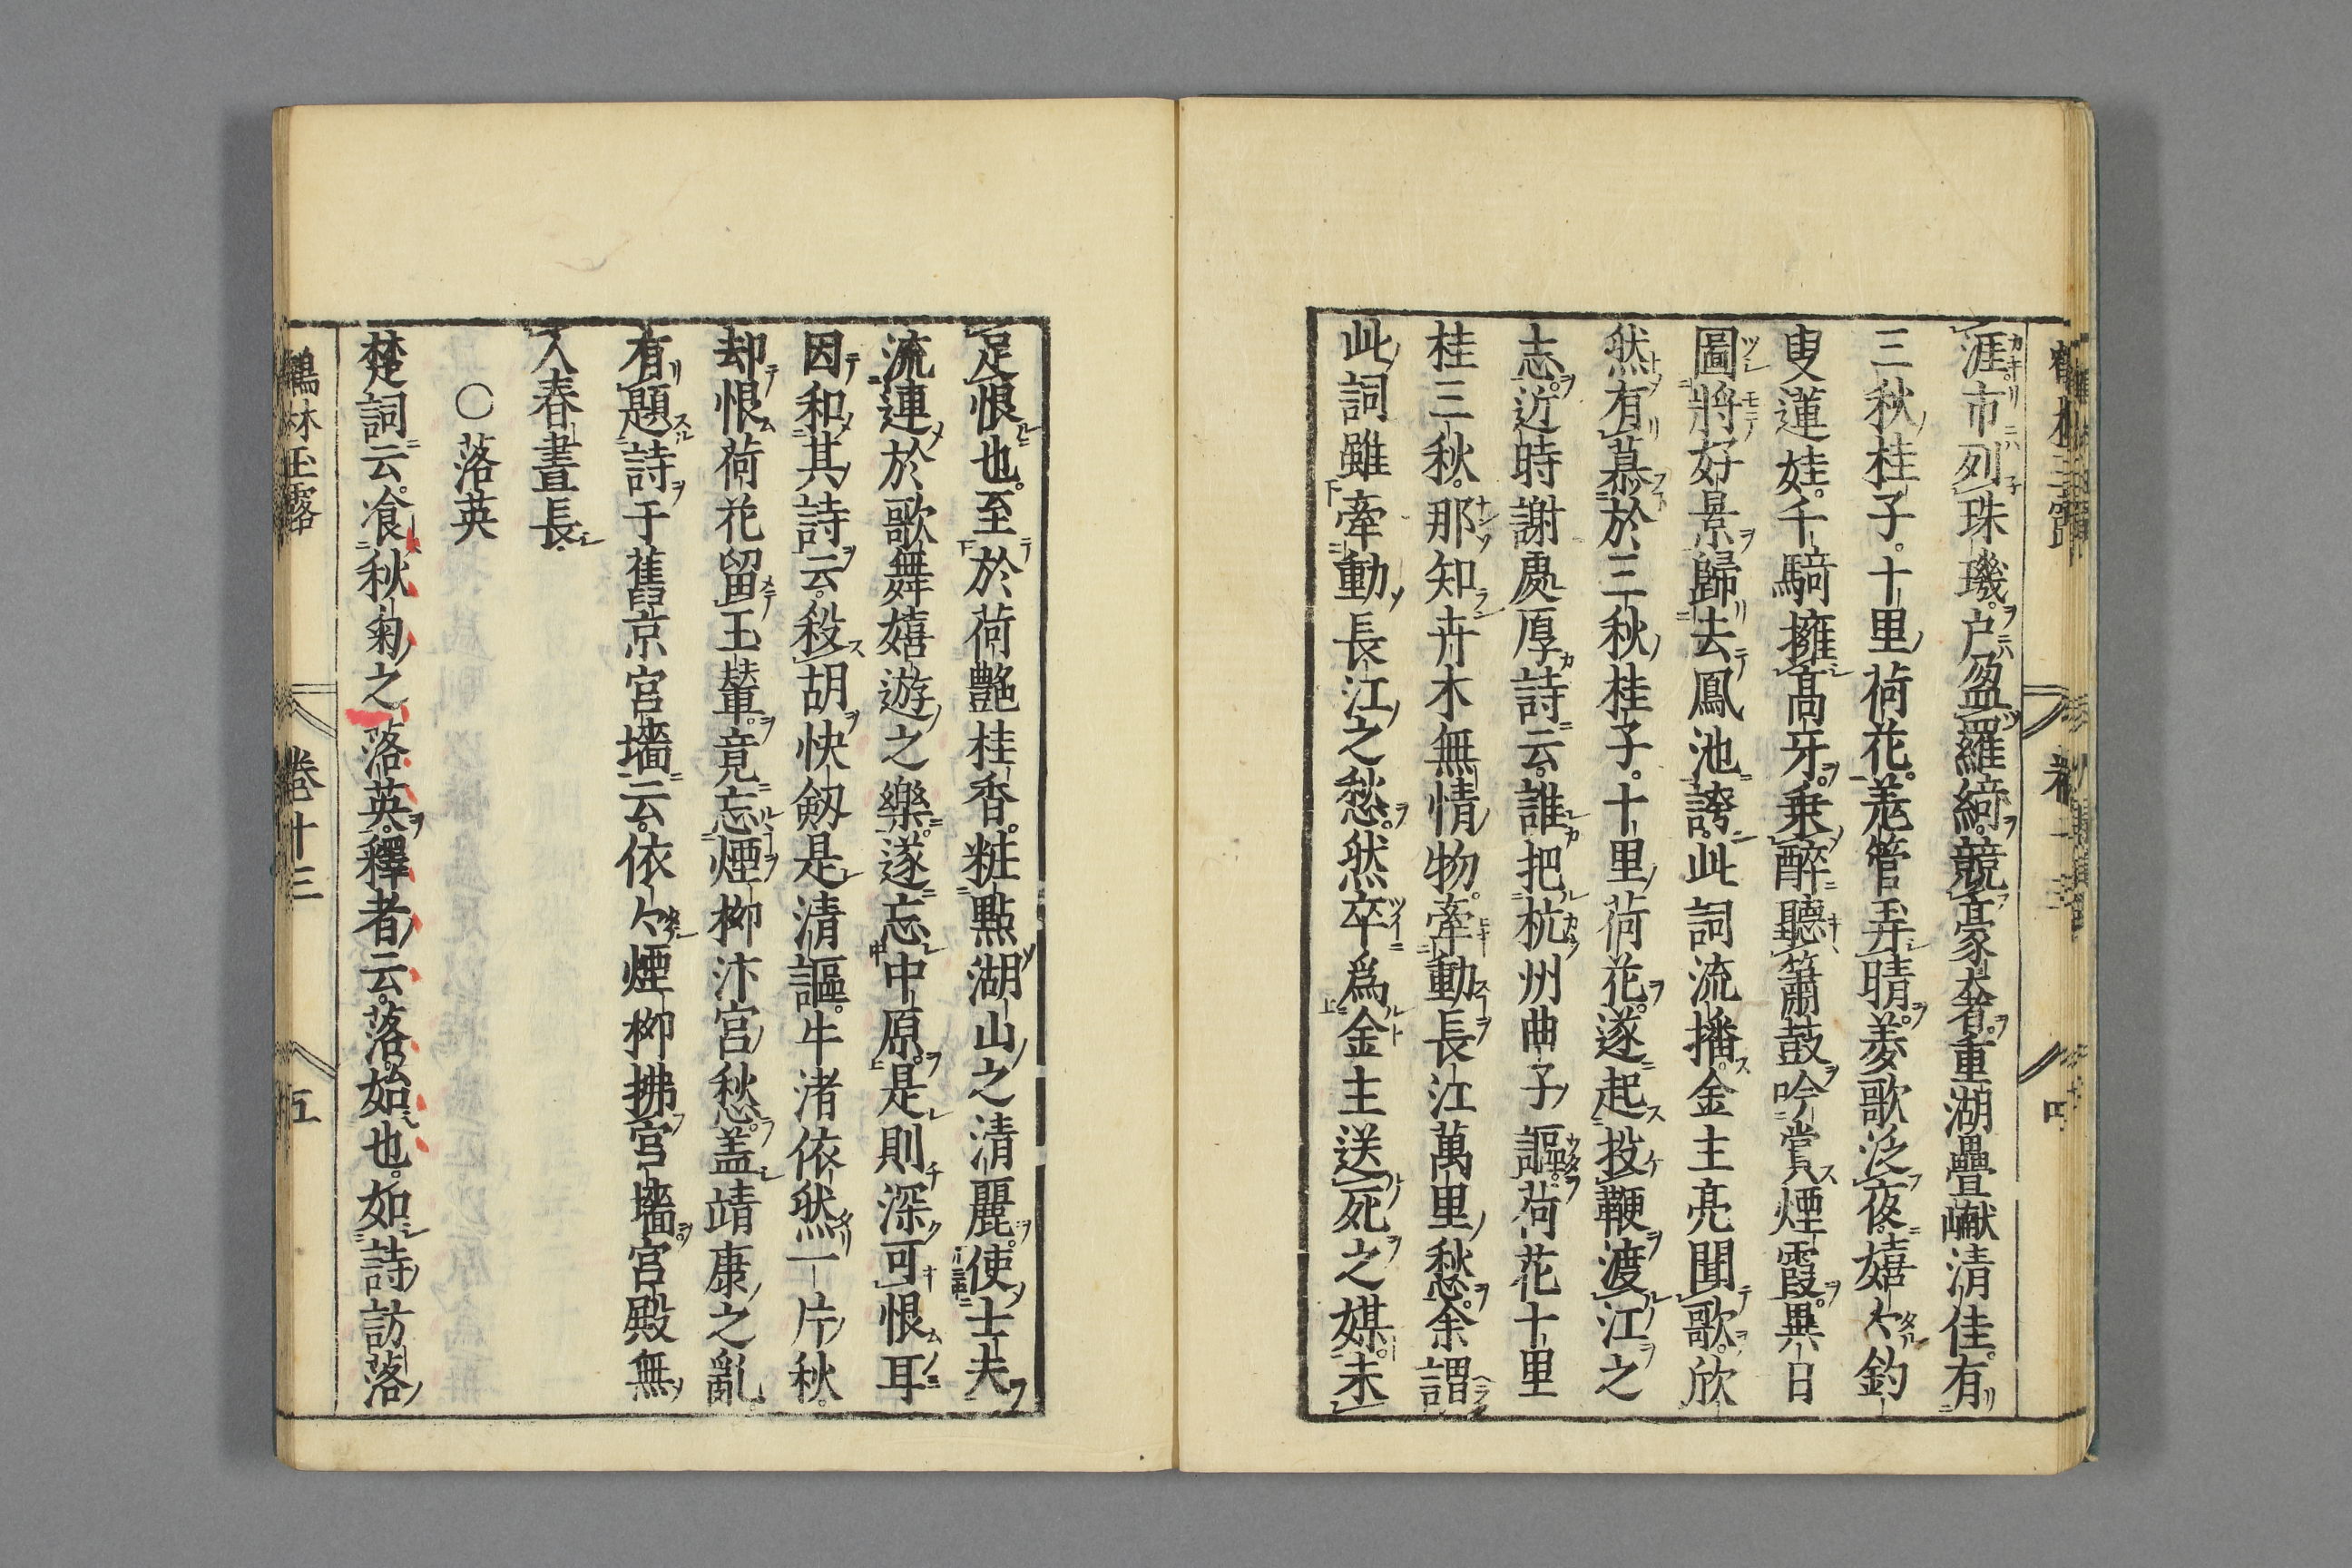 涯市列珠璣户盈羅綺競豪奢重湖疊巘清佳有
三秋桂子十里荷花羗管弄晴菱歌泛夜嬉〻釣
叟蓮娃千騎擁髙牙乗醉聽簫鼓吟賞煙霞異日
圖將好景歸去鳳池誇此詞流播金主亮聞歌欣
然有慕於三秋桂子十里荷花遂起投鞭渡江之
志近時謝處厚詩云誰把杭州曲子謳荷花十里
桂三秋那知卉木無情物牽動長江萬里愁余謂
此詞雖牽動長江之愁然卒爲金主送死之媒未
足恨也至於荷艶桂香粧點湖山之清麗使士夫
流連於歌舞嬉遊之樂遂忘中原是則深可恨耳
因和其詩云殺胡快劒是清謳牛渚依然一片秋
却恨荷花留玉輦竟忘煙柳汴宫愁盖靖康之亂
有題詩于舊京宫墻云依〻煙柳拂宫墻宫殿無
人春晝長
○落英
楚詞云飡秋菊之落英釋者云落始也如詩訪落
鶴林玉露 卷十三 五